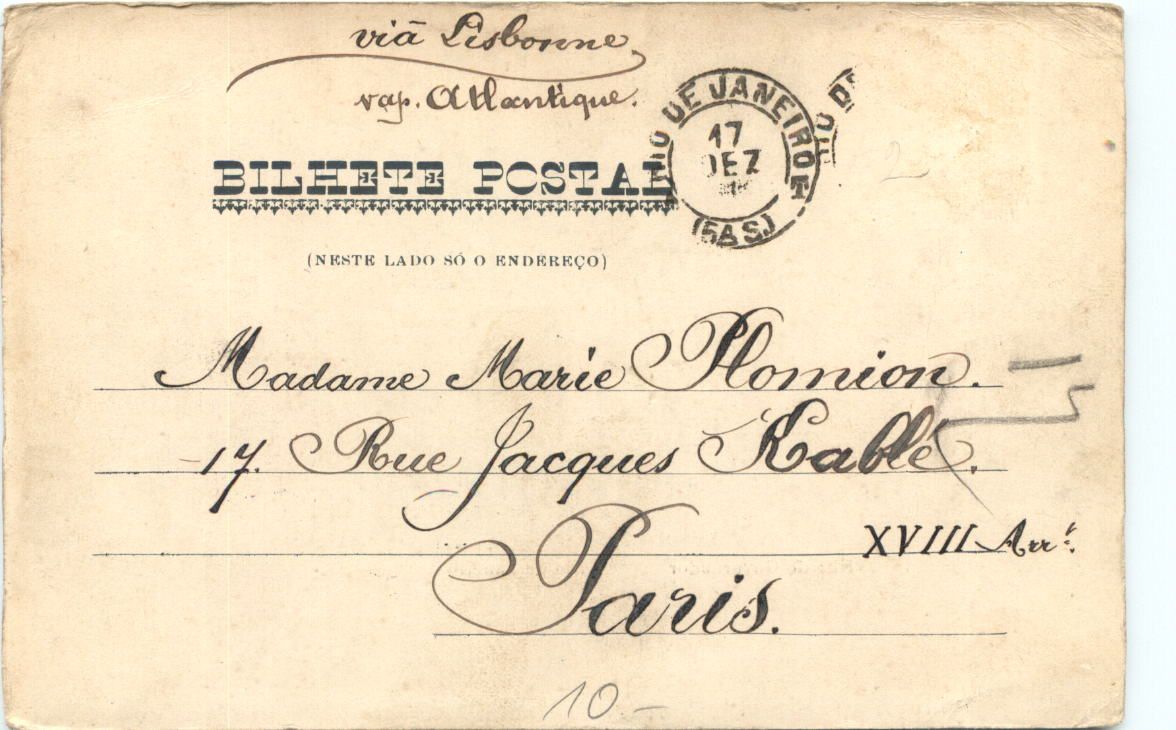 viā Lisbonne
vap. Atlantique.
BILHETE POSTAL
RIO DE JANEIRO
17
DEZ
(5ª S)
RIO DE
(NESTE LADO SÓ O ENDEREÇO)
Madame Marie Plomion.
17. Rue Jacques Kablé.
XVIII Arrt.
Paris.
10 -